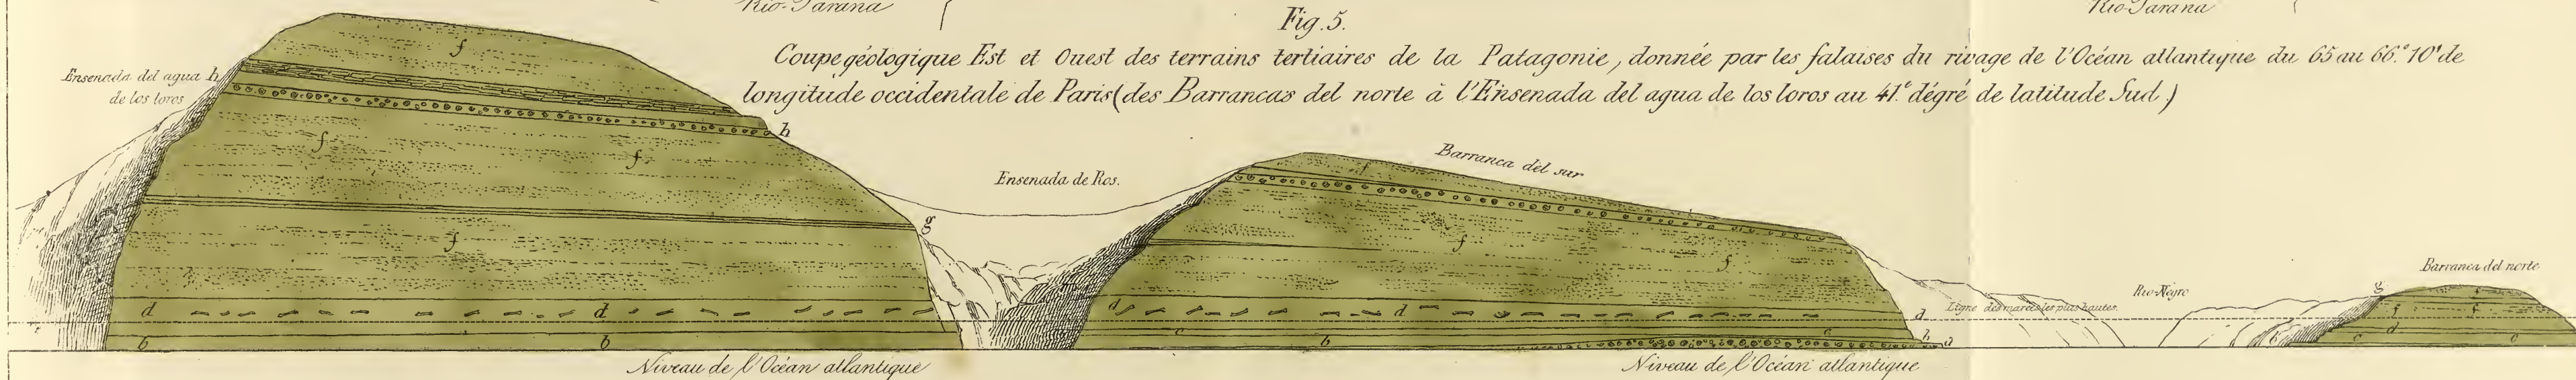 Rio-Parana
Rio-Parana
Fig. 5.
Coupe géologique Est et Ouest des terrains tertiaires de la Patagonie, donnée par les falaises du rivage de l'Océan atlantique du 65 au 66.° 10' de
longitude occidentale de Paris (des Barrancas del norte à l'Ensenada del agua de los loros au 41.e dégré de latitude Sud.)
Ensenada del agua
de los loros
h
f
h
f
f
f
g
d
d
b
b
Ensenada de Ros.
Barranca del sur
f
f
f
d
d
d
c
c
b
h
a
Ligne des marées les plus hautes.
Rio-Négro
Barranca del norte
g
f
f
f
d
c
c
Niveau de l'Océan atlantique
Niveau de l'Océan atlantique